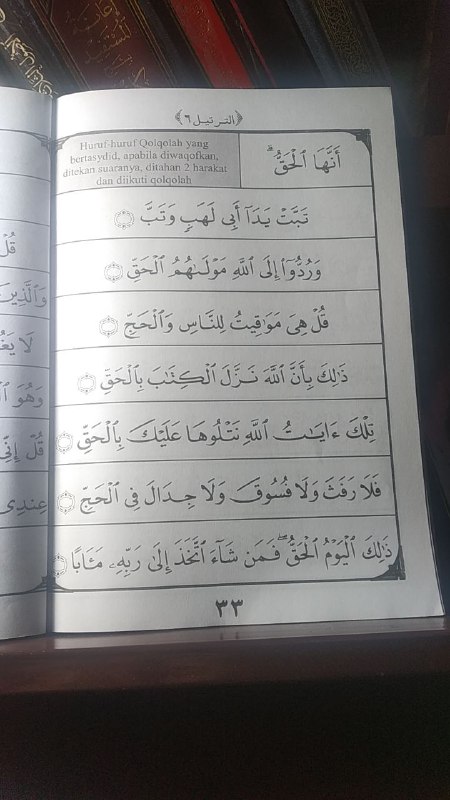 ﴿الترتيل ٦﴾
أَنَّهَا ٱلْحَقُّ ۗ
Huruf-huruf Qolqolah yang
bertasydid, apabila diwaqofkan,
ditekan suaranya, ditahan 2 harakat
dan diikuti qolqolah
تَبَّتْ يَدَآ أَبِى لَهَبٍ وَتَبَّ
وَرُدُّوٓا۟ إِلَى ٱللَّهِ مَوْلَىٰهُمُ ٱلْحَقِّ
قُلْ هِىَ مَوَٰقِيتُ لِلنَّاسِ وَٱلْحَجِّ
ذَٰلِكَ بِأَنَّ ٱللَّهَ نَزَّلَ ٱلْكِتَٰبَ بِٱلْحَقِّ
تِلْكَ ءَايَٰتُ ٱللَّهِ نَتْلُوهَا عَلَيْكَ بِٱلْحَقِّ
فَلَا رَفَثَ وَلَا فُسُوقَ وَلَا جِدَالَ فِى ٱلْحَجِّ
ذَٰلِكَ ٱلْيَوْمُ ٱلْحَقُّ ۖ فَمَن شَآءَ ٱتَّخَذَ إِلَىٰ رَبِّهِۦ مَـَٔابًا
٣٣
قُلْ
وَٱلَّذِينَ
وَهُوَ
قُلْ إِنِّى
عِندِى